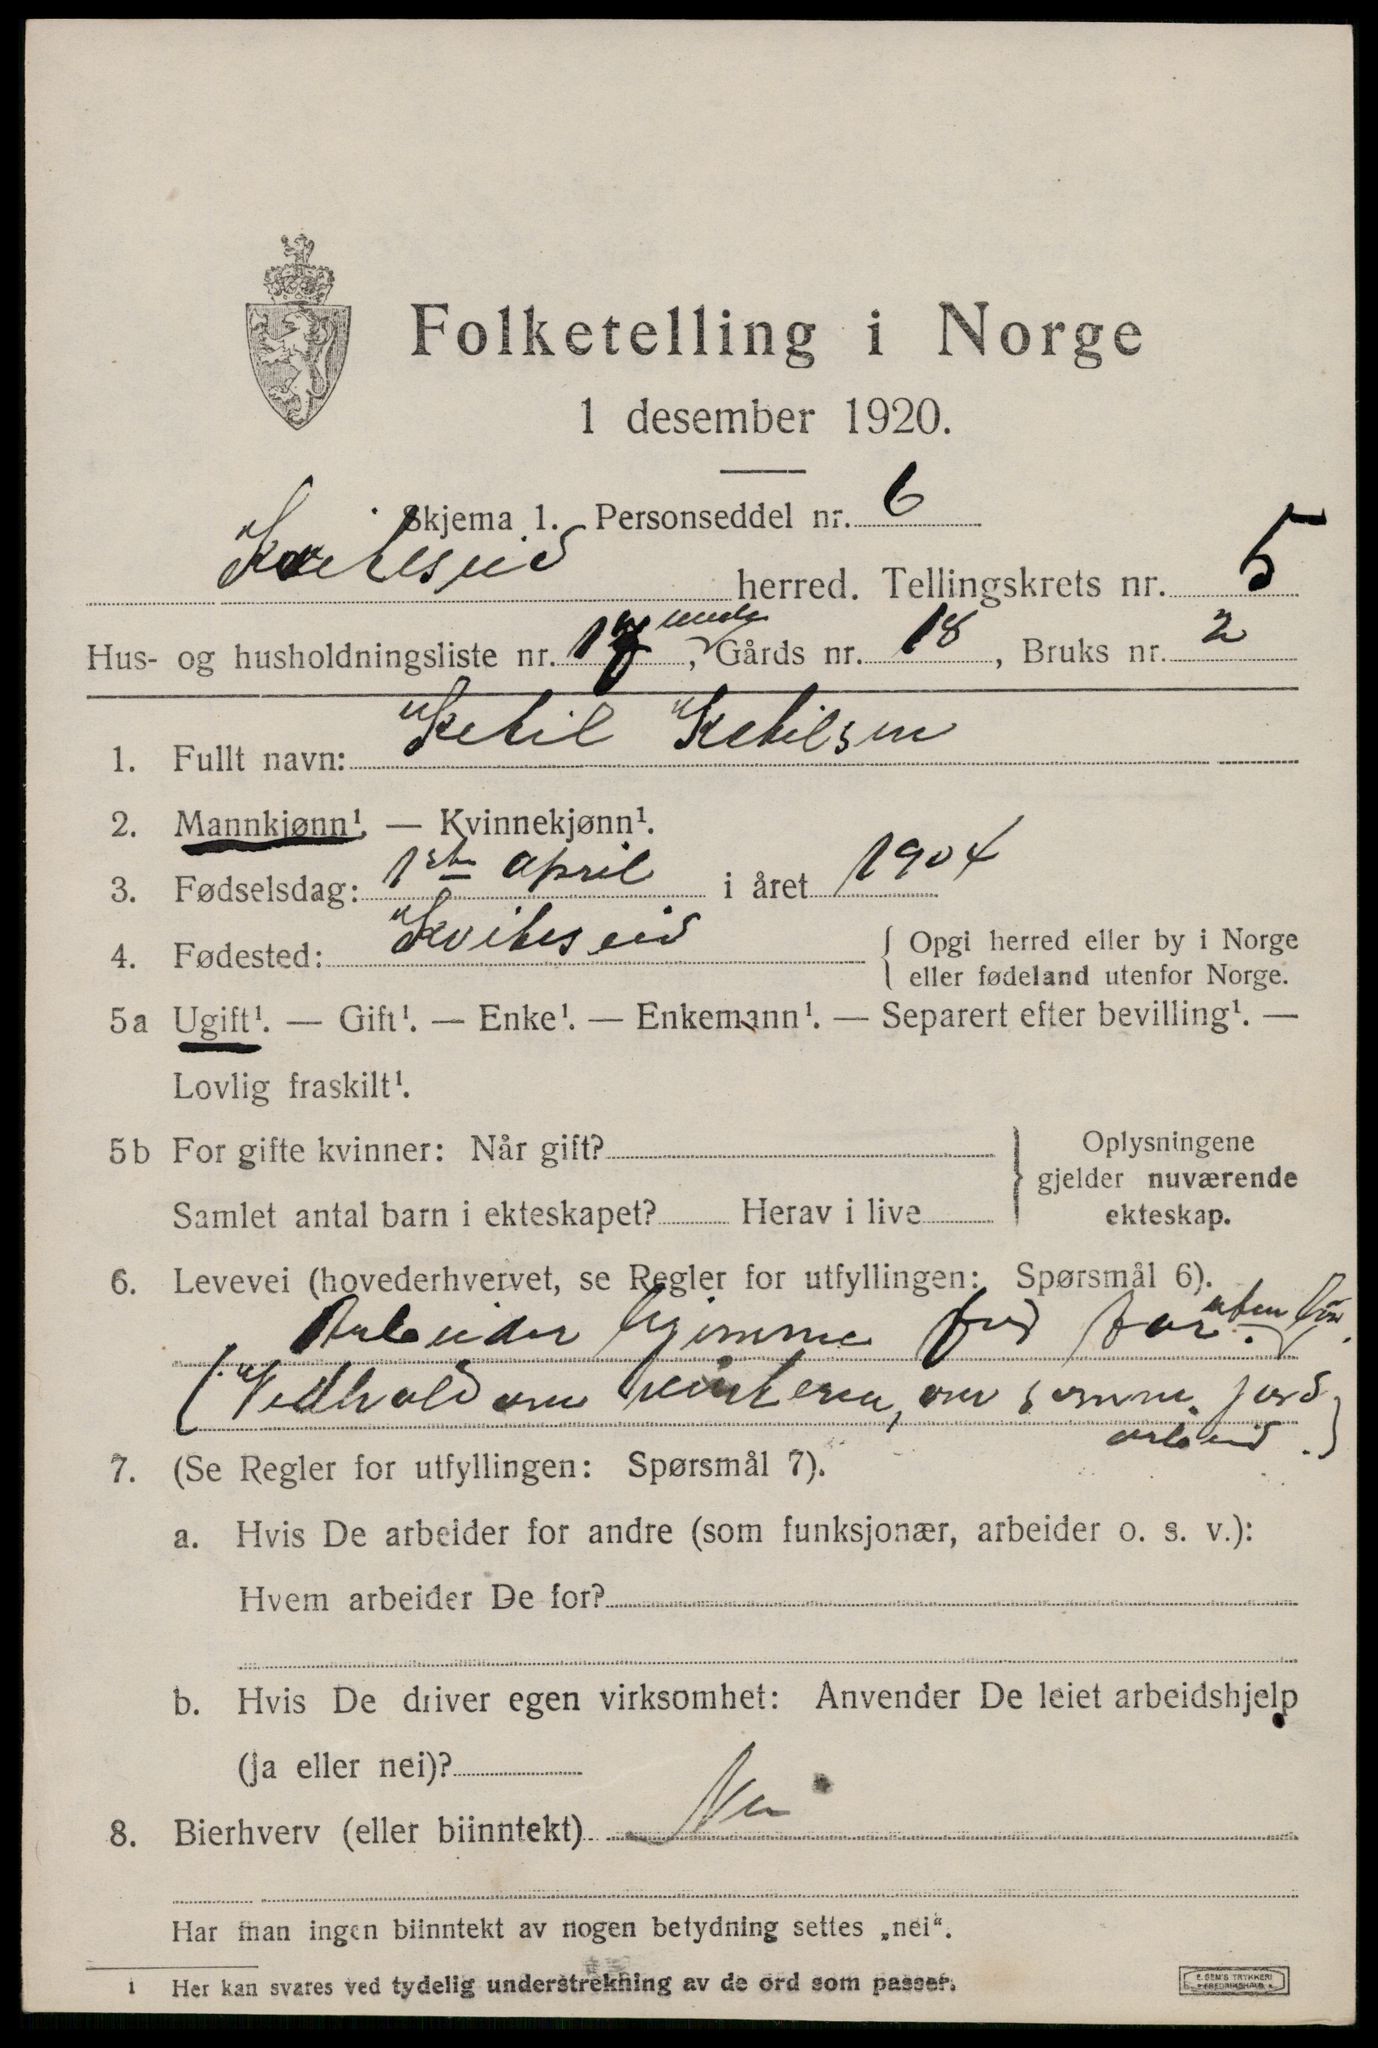 Folketelling i Norge
1 desember 1920.
Skjema 1. Personseddel nr. 6
Kviteseid herred. Tellingskrets nr. 5
Hus- og husholdningsliste nr. 17, Gårds nr. 18, Bruks nr. 2
1. Fullt navn: Ketil Ketilsen
2. Mannkjønn¹. — Kvinnekjønn¹.
3. Fødselsdag: 1ste april i året 1904
4. Fødested: Kviteseid { Opgi herred eller by i Norge
eller fødeland utenfor Norge.
5a Ugift¹. — Gift¹. — Enke¹. — Enkemann¹. — Separert efter bevilling¹. —
Lovlig fraskilt¹.
5b For gifte kvinner: Når gift? } Oplysningene
gjelder nuværende
Samlet antal barn i ekteskapet? Herav i live ekteskap.
6. Levevei (hovederhvervet, se Regler for utfyllingen: Spørsmål 6).
Arbeider hjemme for far. uten løn.
(Vedhold om vinteren, om somme. jord
arbeid.)
7. (Se Regler for utfyllingen: Spørsmål 7).
a. Hvis De arbeider for andre (som funksjonær, arbeider o. s. v.):
Hvem arbeider De for?
b. Hvis De driver egen virksomhet: Anvender De leiet arbeidshjelp
(ja eller nei)?
8. Bierhverv (eller biinntekt) Nei
Har man ingen biinntekt av nogen betydning settes „nei“.
1 Her kan svares ved tydelig understrekning av de ord som passer.
E. SEM'S TRYKKERI
FREDRIKSHALD